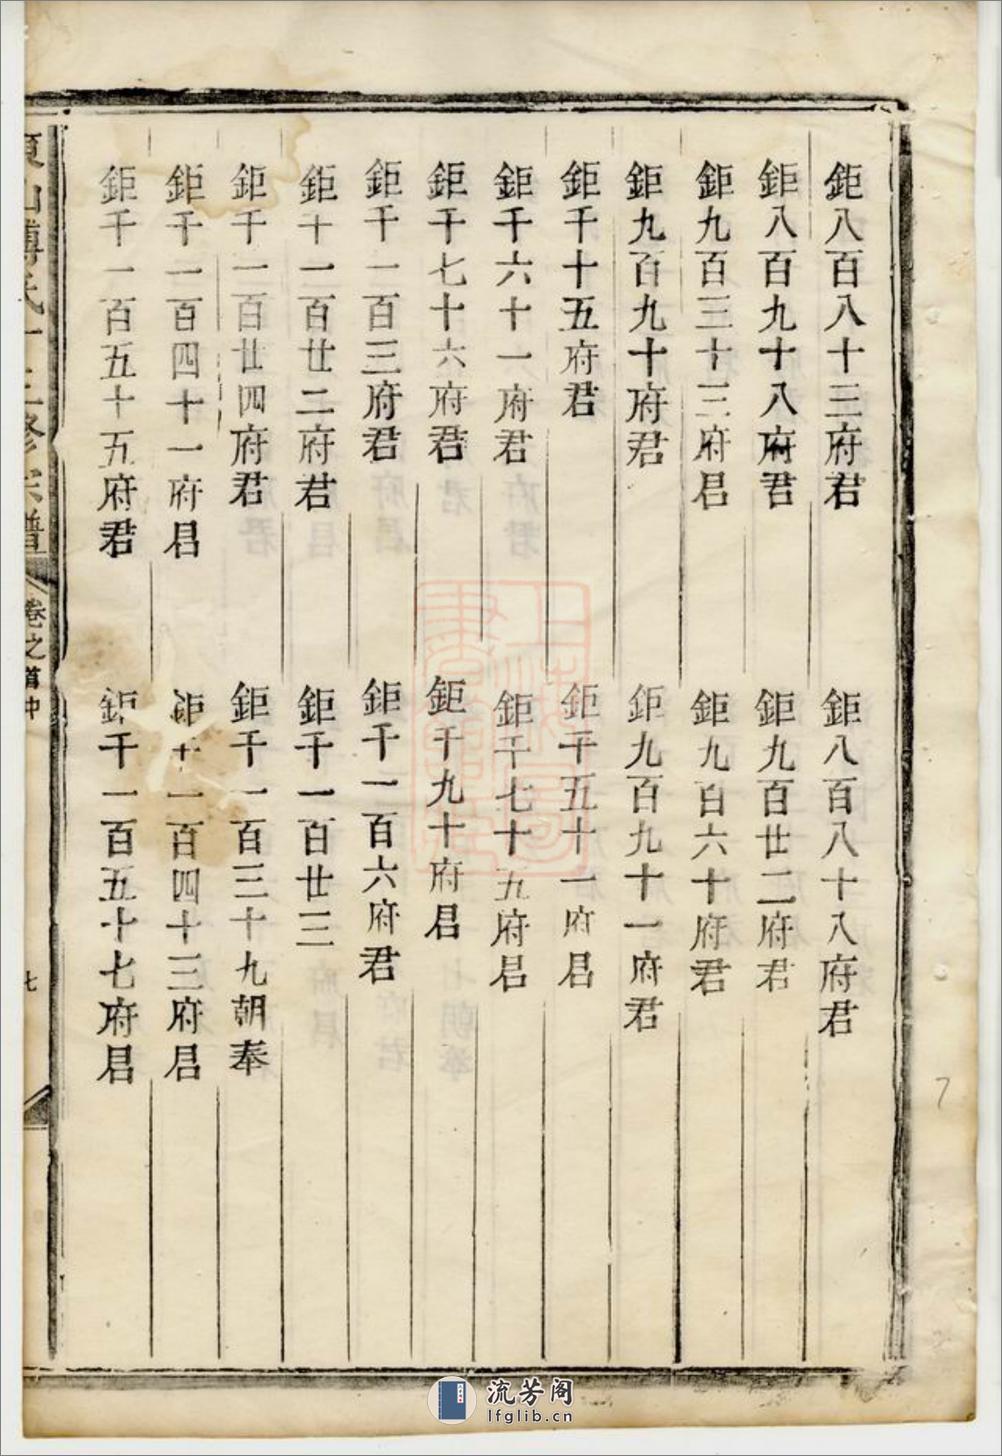 鉅八百八十三府君
鉅八百八十八府君
鉅八百九十八府君
鉅九百廿二府君
鉅九百三十三府君
鉅九百六十府君
鉅九百九十府君
鉅九百九十一府君
鉅千十五府君
鉅千五十一府君
鉅千六十一府君
鉅千七十五府君
鉅千七十六府君
鉅千九十府君
鉅千一百三府君
鉅千一百六府君
鉅千一百廿二府君
鉅千一百廿三
鉅千一百廿四府君
鉅千一百三十九朝奉
鉅千一百四十一府君
鉅千一百四十三府君
鉅千一百五十五府君
鉅千一百五十七府君
東山傅氏十三修宗譜
卷之首中
七
7
流芳阁
lfglib.cn